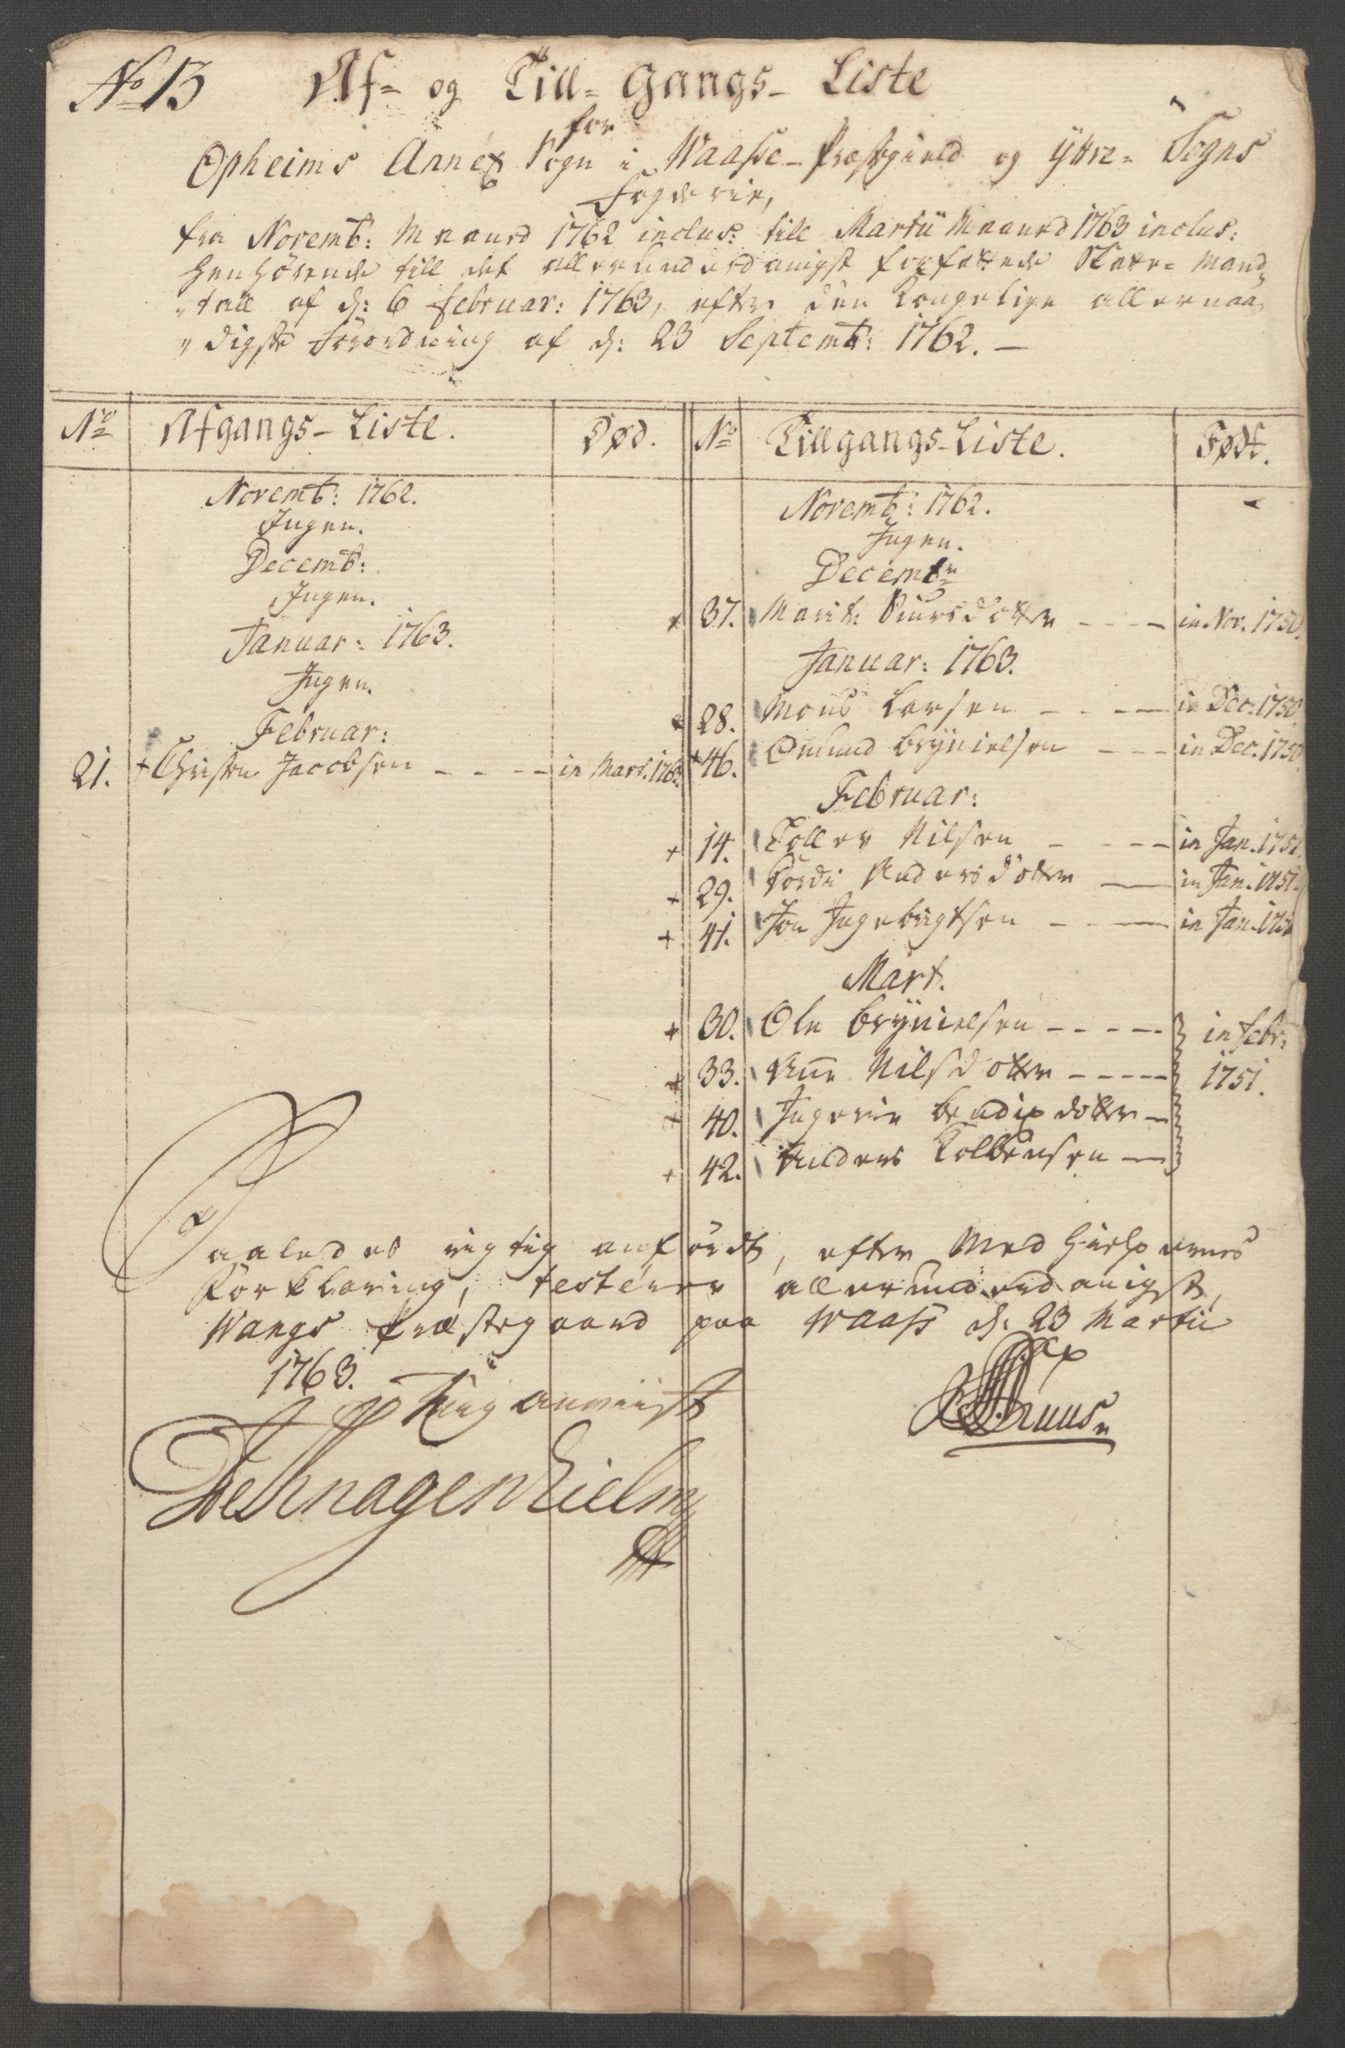 No 13 Af- og Till- Gangs- Liste
for
Opheims Annex Sogn i Waasse- Præstgield og Yttre- Sogns
Fogderie,
fra Novemb: Maaned 1762 inclus: till Martii Maaned 1763 inclus:
henhørende till det allerunderdanigst forfattede Skatte- Mand-
"tall af d: 6 Februar: 1763, efter den Kongelige allernaa-
"digste Forordning af d: 23 Septemb: 1762. —
No Afgangs- Liste. Død. No Tillgangs- Liste. Født.
Novemb: 1762. Novemb: 1762.
Ingen. Ingen.
Decemb: Decembr
Ingen. + 37. Marite Siursdotter - - - - in Nov. 1750.
Januar: 1763. Januar: 1763.
Ingen. + 28. Mons Larsen - - - - in Dec. 1750
Februar: + 46. Omund Brynielsen - - - in Dec. 1750.
21. + Christen Jacobsen - - - - in Mart. 1763.
Februar:
+ 14. Toller Nilsen - - - - in Jan. 1751.
+ 29. Tordi Andersdotter — in Jan. 1751.
+ 41. Jon Ingebrigtsen - - - in Jan. 1751
Mart.
+ 30. Ole Brynielsen - - - - in Febr:
+ 33. Ane Nilsdotter - - - - 1751.
+ 40. Ingerie Bendixdotter —
+ 42. Anders Kolbensen —
Saaledes rigtig anført, efter Medhielpernes
Forklaring, testerer allerunderdanigst,
Wangs Præstegaard paa Waass d: 23 Martii
1763.
Miltzow